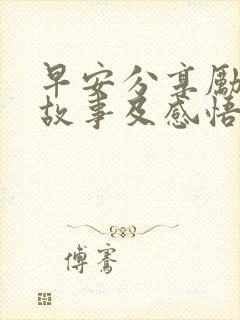 早安分享励
故事及感悟
傅骞